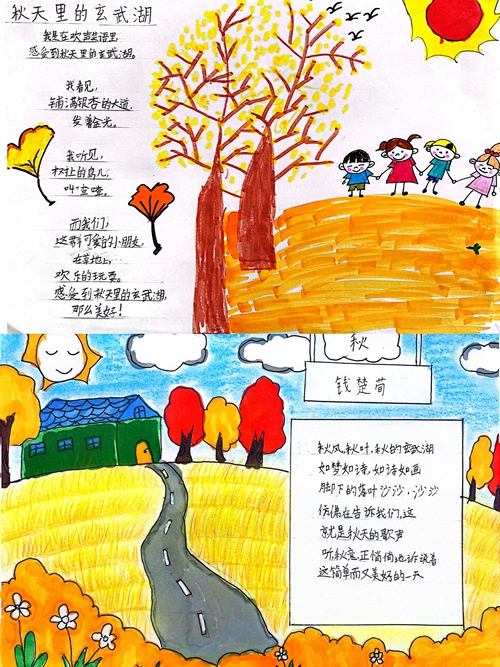 秋天里的玄武湖
我是在欢声笑语里,
感受到秋天里的玄武湖。
我看见,
铺满银杏的大道,
发着金光。
我听见,
枝上的鸟儿,
叫喳喳。
而我们,
这群可爱的小朋友,
在草地上,
欢乐的玩耍。
感受到秋天里的玄武湖,
那么美好!
秋
钱楚荀
秋风、秋叶、秋的玄武湖
如梦如诗,如诗如画
脚下的落叶沙沙、沙沙
仿佛在告诉我们,这
就是秋天的歌声
听,秋意正悄悄地诉说着
这简单而又美好的一天